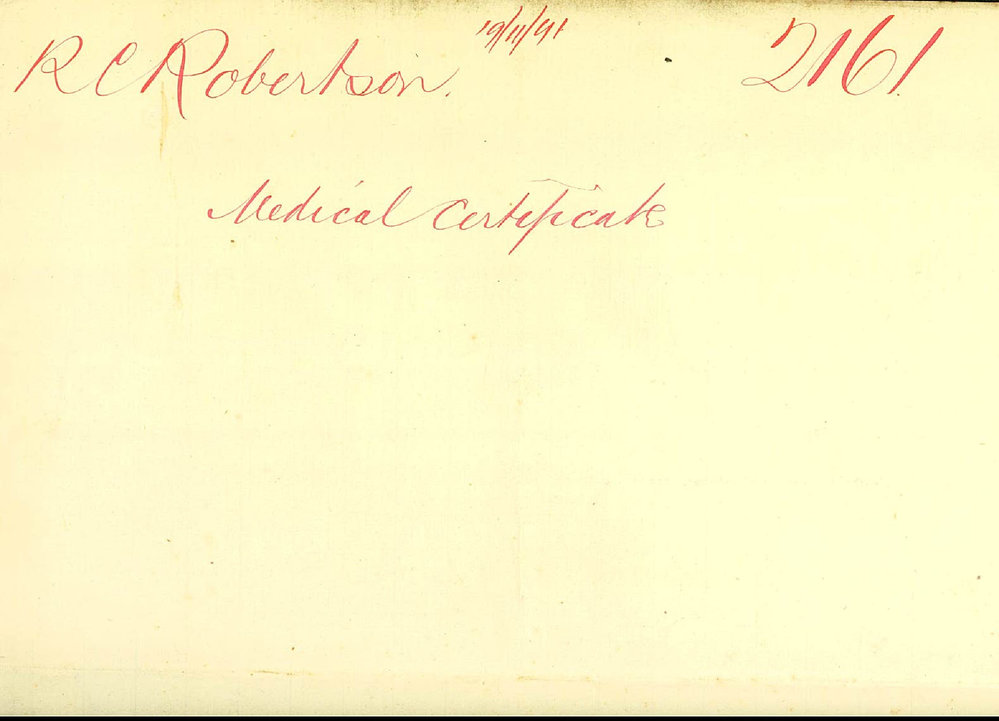 R C Robertson. 19/11/91 2161.
Medical Certificate